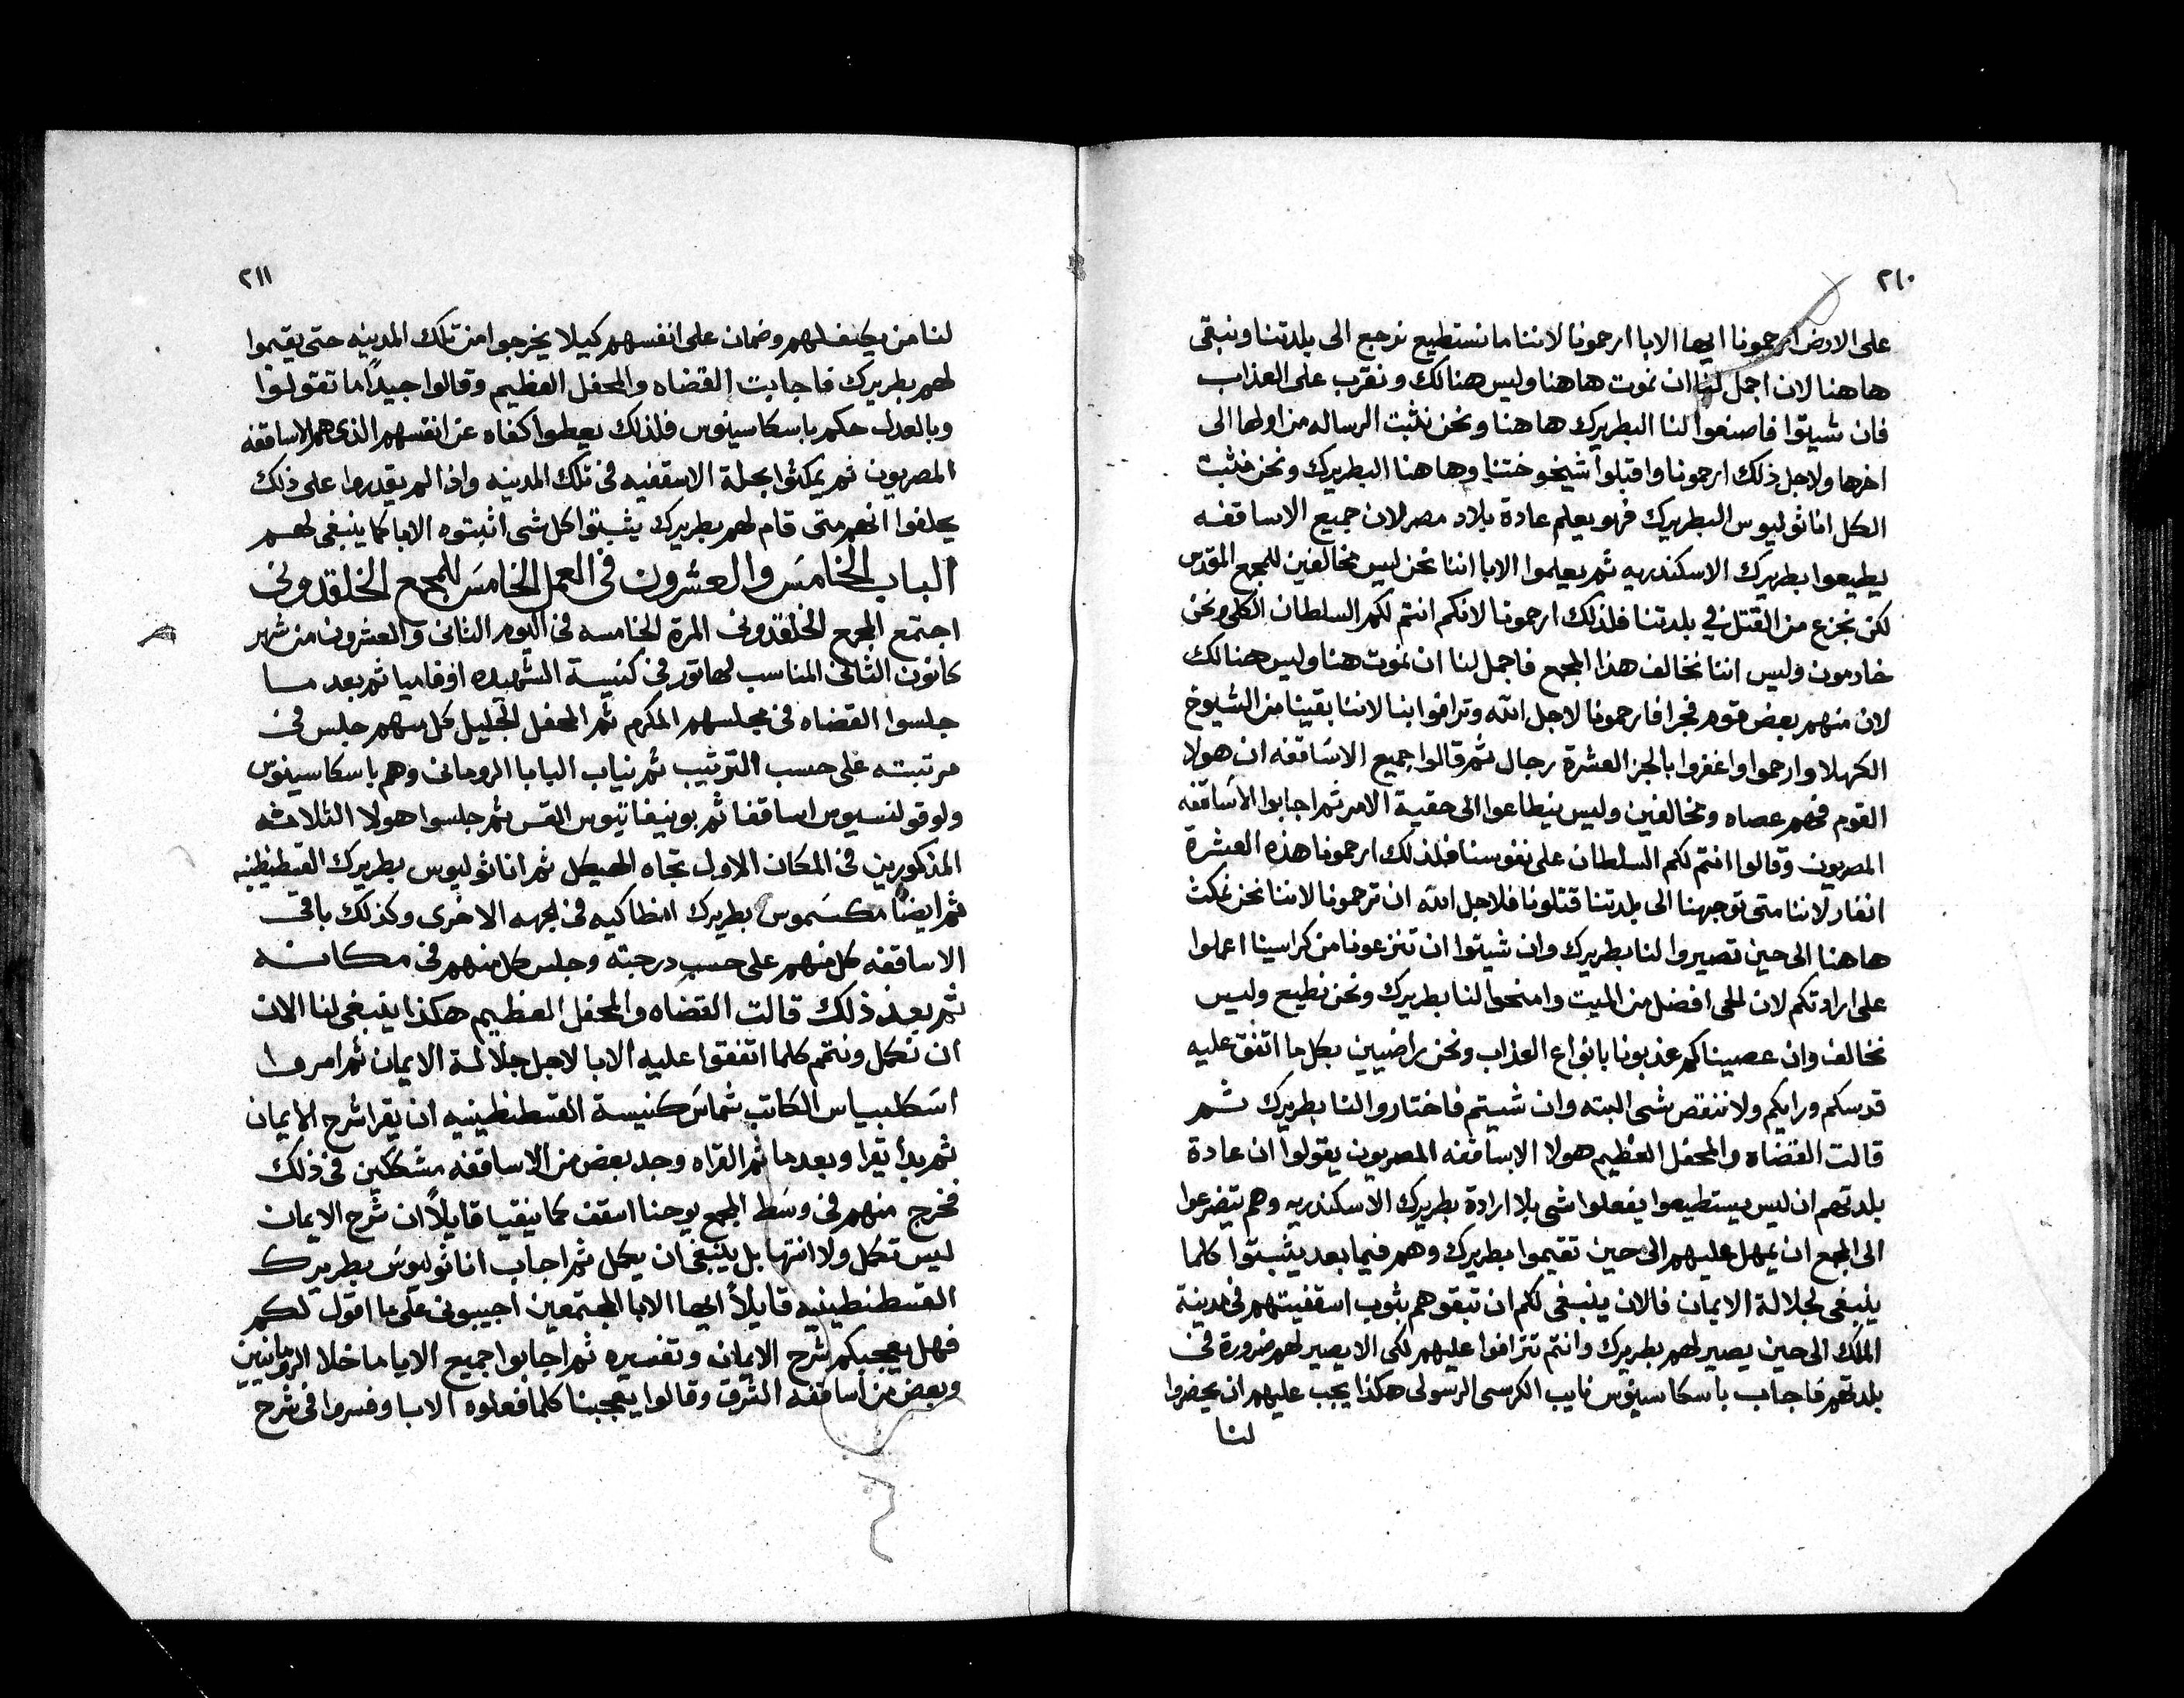 ٢١٠
على الارض ارحمونا ايها الابا ارحمونا لاننا ما نستطيع نرجع الى بلدتنا ونبقى
هاهنا لان اجمل لنا ان نموت هاهنا وليس هنالك ونقرب على العذاب
فان شيتوا فاصنعوا لنا البطريرك هاهنا ونحن نثبت الرساله من اولها الى
اخرها ولاجل ذلك ارحمونا واقبلوا شيخوختنا وهاهنا البطريرك ونحن نثبت
الكل اناثوليوس البطريرك فهو يعلم عادة بلاد مصر لان جميع الاساقفه
يطيعوا بطريرك الاسكندريه ثم يعلموا الابا اننا نحن ليس مخالفين للمجمع المقدس
لكن نجزع من القتل في بلدتنا فلذلك ارحمونا لانكم انتم لكم السلطان الكلى ونحن
خادمون وليس اننا نخالف هذا المجمع فاجمل لنا ان نموت هنا وليس هنالك
لان منهم بعض قوم فجرا فارحمونا لاجل الله وترافوا بنا لاننا بقينا من الشيوخ
الكهلا وارحموا واغفروا بالجز العشرة رجال ثم قالوا جميع الاساقفه ان هولا
القوم فهم عصاه ومخالفين وليس ينطاعوا الى حقية الامر ثم اجابوا الاساقفه
المصريون وقالوا انتم لكم السلطان على نفوسنا فلذلك ارحمونا هذه العشرة
انفار لاننا متى توجهنا الى بلدتنا قتلونا فلاجل الله ان ترحمونا لاننا نحن نمكث
هاهنا الى حين تصيروا لنا بطريرك وان شيتوا ان تنزعونا من كراسينا اعملوا
على ارادتكم لان للحى افضل من الميت وامنحوا لنا بطريرك ونحن نطيع وليس
نخالف وان عصيناكم عذبونا بانواع العذاب ونحن راضيين بكل ما اتفق عليه
قدسكم ورايكم ولا ننقص شى البته وان شيتم فاختاروا لنا بطريرك ثم
قالت القضاه والمحفل العظيم هولا الاساقفه المصريون يقولوا ان عادة
بلدتهم ان ليس يستطيعوا يفعلوا شى بلا ارادة بطريرك الاسكندريه وهم يتضرعوا
الى المجمع ان يمهل عليهم الى حين تقيموا بطريرك وهم فيما بعد يثبتوا كلما
ينبغى لجلالة الايمان فالان ينبغى لكم ان تبقوهم بثوب اسقفيتهم فى مدينة
الملك الى حين يصير لهم بطريرك وانتم تترافوا عليهم لكى الا يصير لهم ضرورة فى
بلدتهم فاجاب باسكاسينوس نايب الكرسى الرسولى هكذا يجب عليهم ان يحضروا
لنا
٢١١
لنا من يكفلهم وضمان على انفسهم كيلا يخرجوا من تلك المدينه حتى يقيموا
لهم بطريرك فاجابت القضاه والمحفل العظيم وقالوا جيداً ما تقولوا
وبالعدل حكم باسكاسينوس فلذلك يعطوا كفاه عن انفسهم الذى هم الاساقفه
المصريون ثم يمكثوا بحلة الاسقفيه فى تلك المدينه واذا لم يقدروا على ذلك
يحلفوا انهم متى قام لهم بطريرك يثبتوا كل شى اثبتوه الابا كما ينبغى لهم
الباب الخامس والعشرون فى العمل الخامس للمجمع الخلقدونى
اجتمع المجمع الخلقدونى المرة الخامسه فى اليوم الثانى والعشرون من شهر
كانون الثانى المناسب لهاتور فى كنيسة الشهيده اوفاميا ثم بعد ما
جلسوا القضاه فى مجلسهم المكرم ثم المحفل الجليل كل منهم جلس فى
مرتبته على حسب الترتيب ثم نياب البابا الرومانى وهم باسكاسينوس
ولوقولنسيوس اساقفا ثم بونيفاتيوس القس ثم جلسوا هولا الثلاثه
المذكورين فى المكان الاول تجاه الهيكل ثم اناثوليوس بطريرك القسطنطينيه
ثم ايضا مكسموس بطريرك انطاكيه فى الجهه الاخرى وكذلك باقى
الاساقفه كل منهم على حسب درجته وجلس كل منهم فى مكانه
ثم بعد ذلك قالت القضاه والمحفل العظيم هكذا ينبغى لنا الان
ان نكمل ونتمم كلما اتفقوا عليه الابا لاجل جلالة الايمان ثم امروا
اسكلبياس الكاتب شماس كنيسة القسطنطينيه ان يقرا شرح الايمان
ثم بدأ يقرا وبعد ما تم القراه وجد بعض من الاساقفه مشككين فى ذلك
فخرج منهم فى وسط المجمع يوحنا اسقف كمانيقيا قايلاً ان شرح الايمان
ليس تكمل ولا انتها بل ينبغى ان يكمل ثم اجاب اناثوليوس بطريرك
القسطنطينيه قايلاً ايها الابا المجتمعين اجيبونى على ما اقول لكم
فهل يعجبكم شرح الايمان وتفسيره ثم اجابوا جميع الابا ما خلا الرومانيين
وبعض من اساقفه الشرق وقالوا يعجبنا كلما فعلوه الابا وفسروا فى شرح